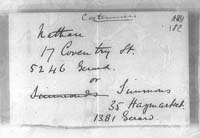 Costumiers
Nathan
17 Coventry St.
5246 Gerard.
or
Simmons
35 Haymarket
1381 Gerard.